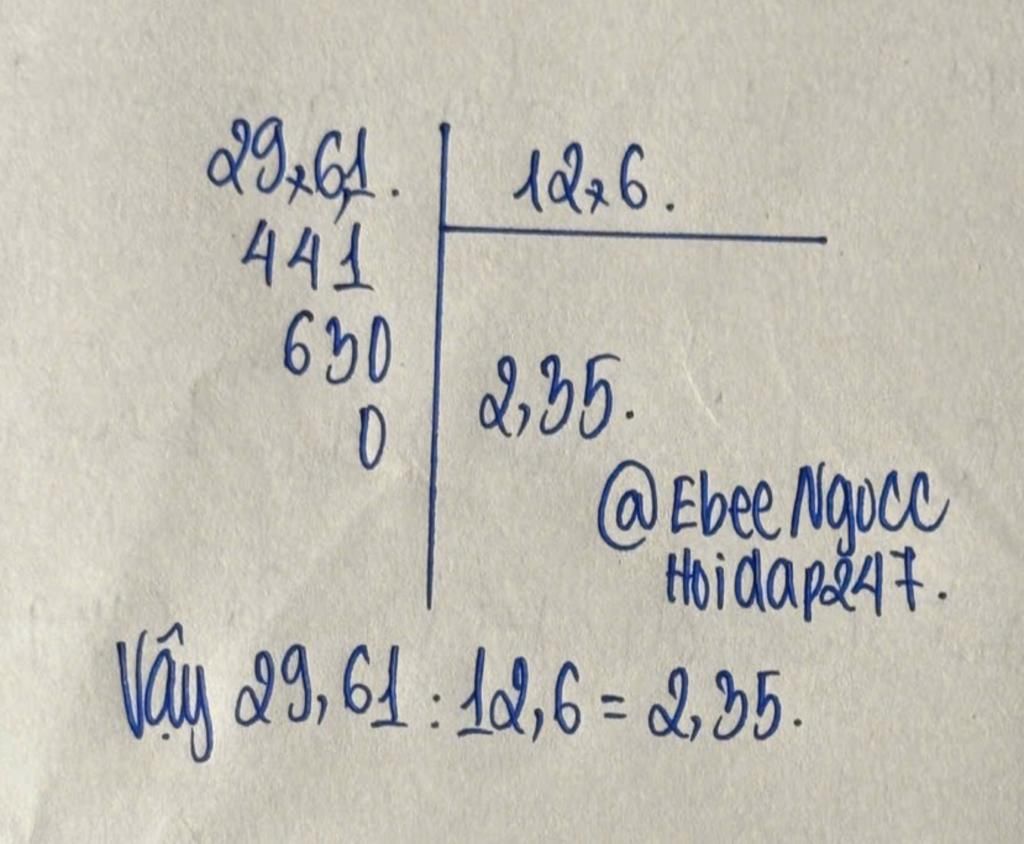 29,6,1. 12,6.
441
630
0
2,35.
@Ebee Ngọcc
Hoidap247.
Vậy 29,61 : 12,6 = 2,35.